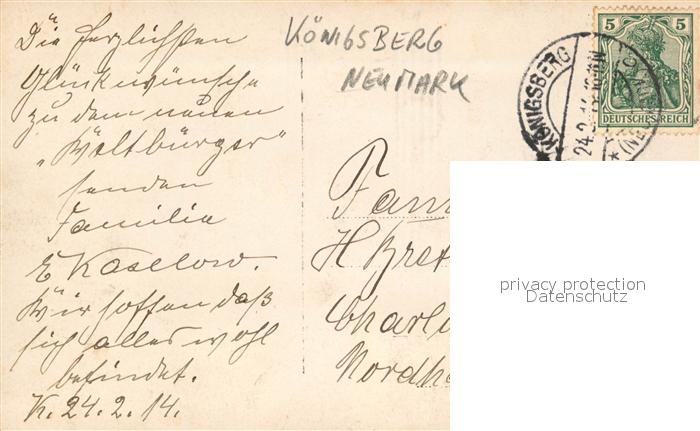 Die herzlichsten
Glückwünsche
zu dem neuen
„Weltbürger"
senden
Familie
E Kaselow.
Wir hoffen daß
sich alles wohl
befindet.
K. 24.2.14.
KÖNIGSBERG
NEUMARK
5 5
DEUTSCHES REICH
KÖNIGSBERG
24.2.
Fam
H
Charl
Nordh
privacy protection
Datenschutz